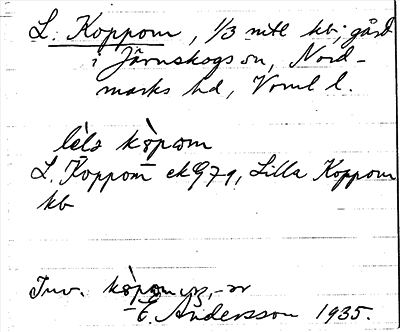 L. Koppom, 1/3 mtl kb; gård
i Järnskogs sn, Nord-
marks hd, Vrml l.
lìlа kɔ̀pom
L. Koppom ek 979, Lilla Koppom
kb
Inv. kɔ̀pom -ar
E. Andersson 1935.